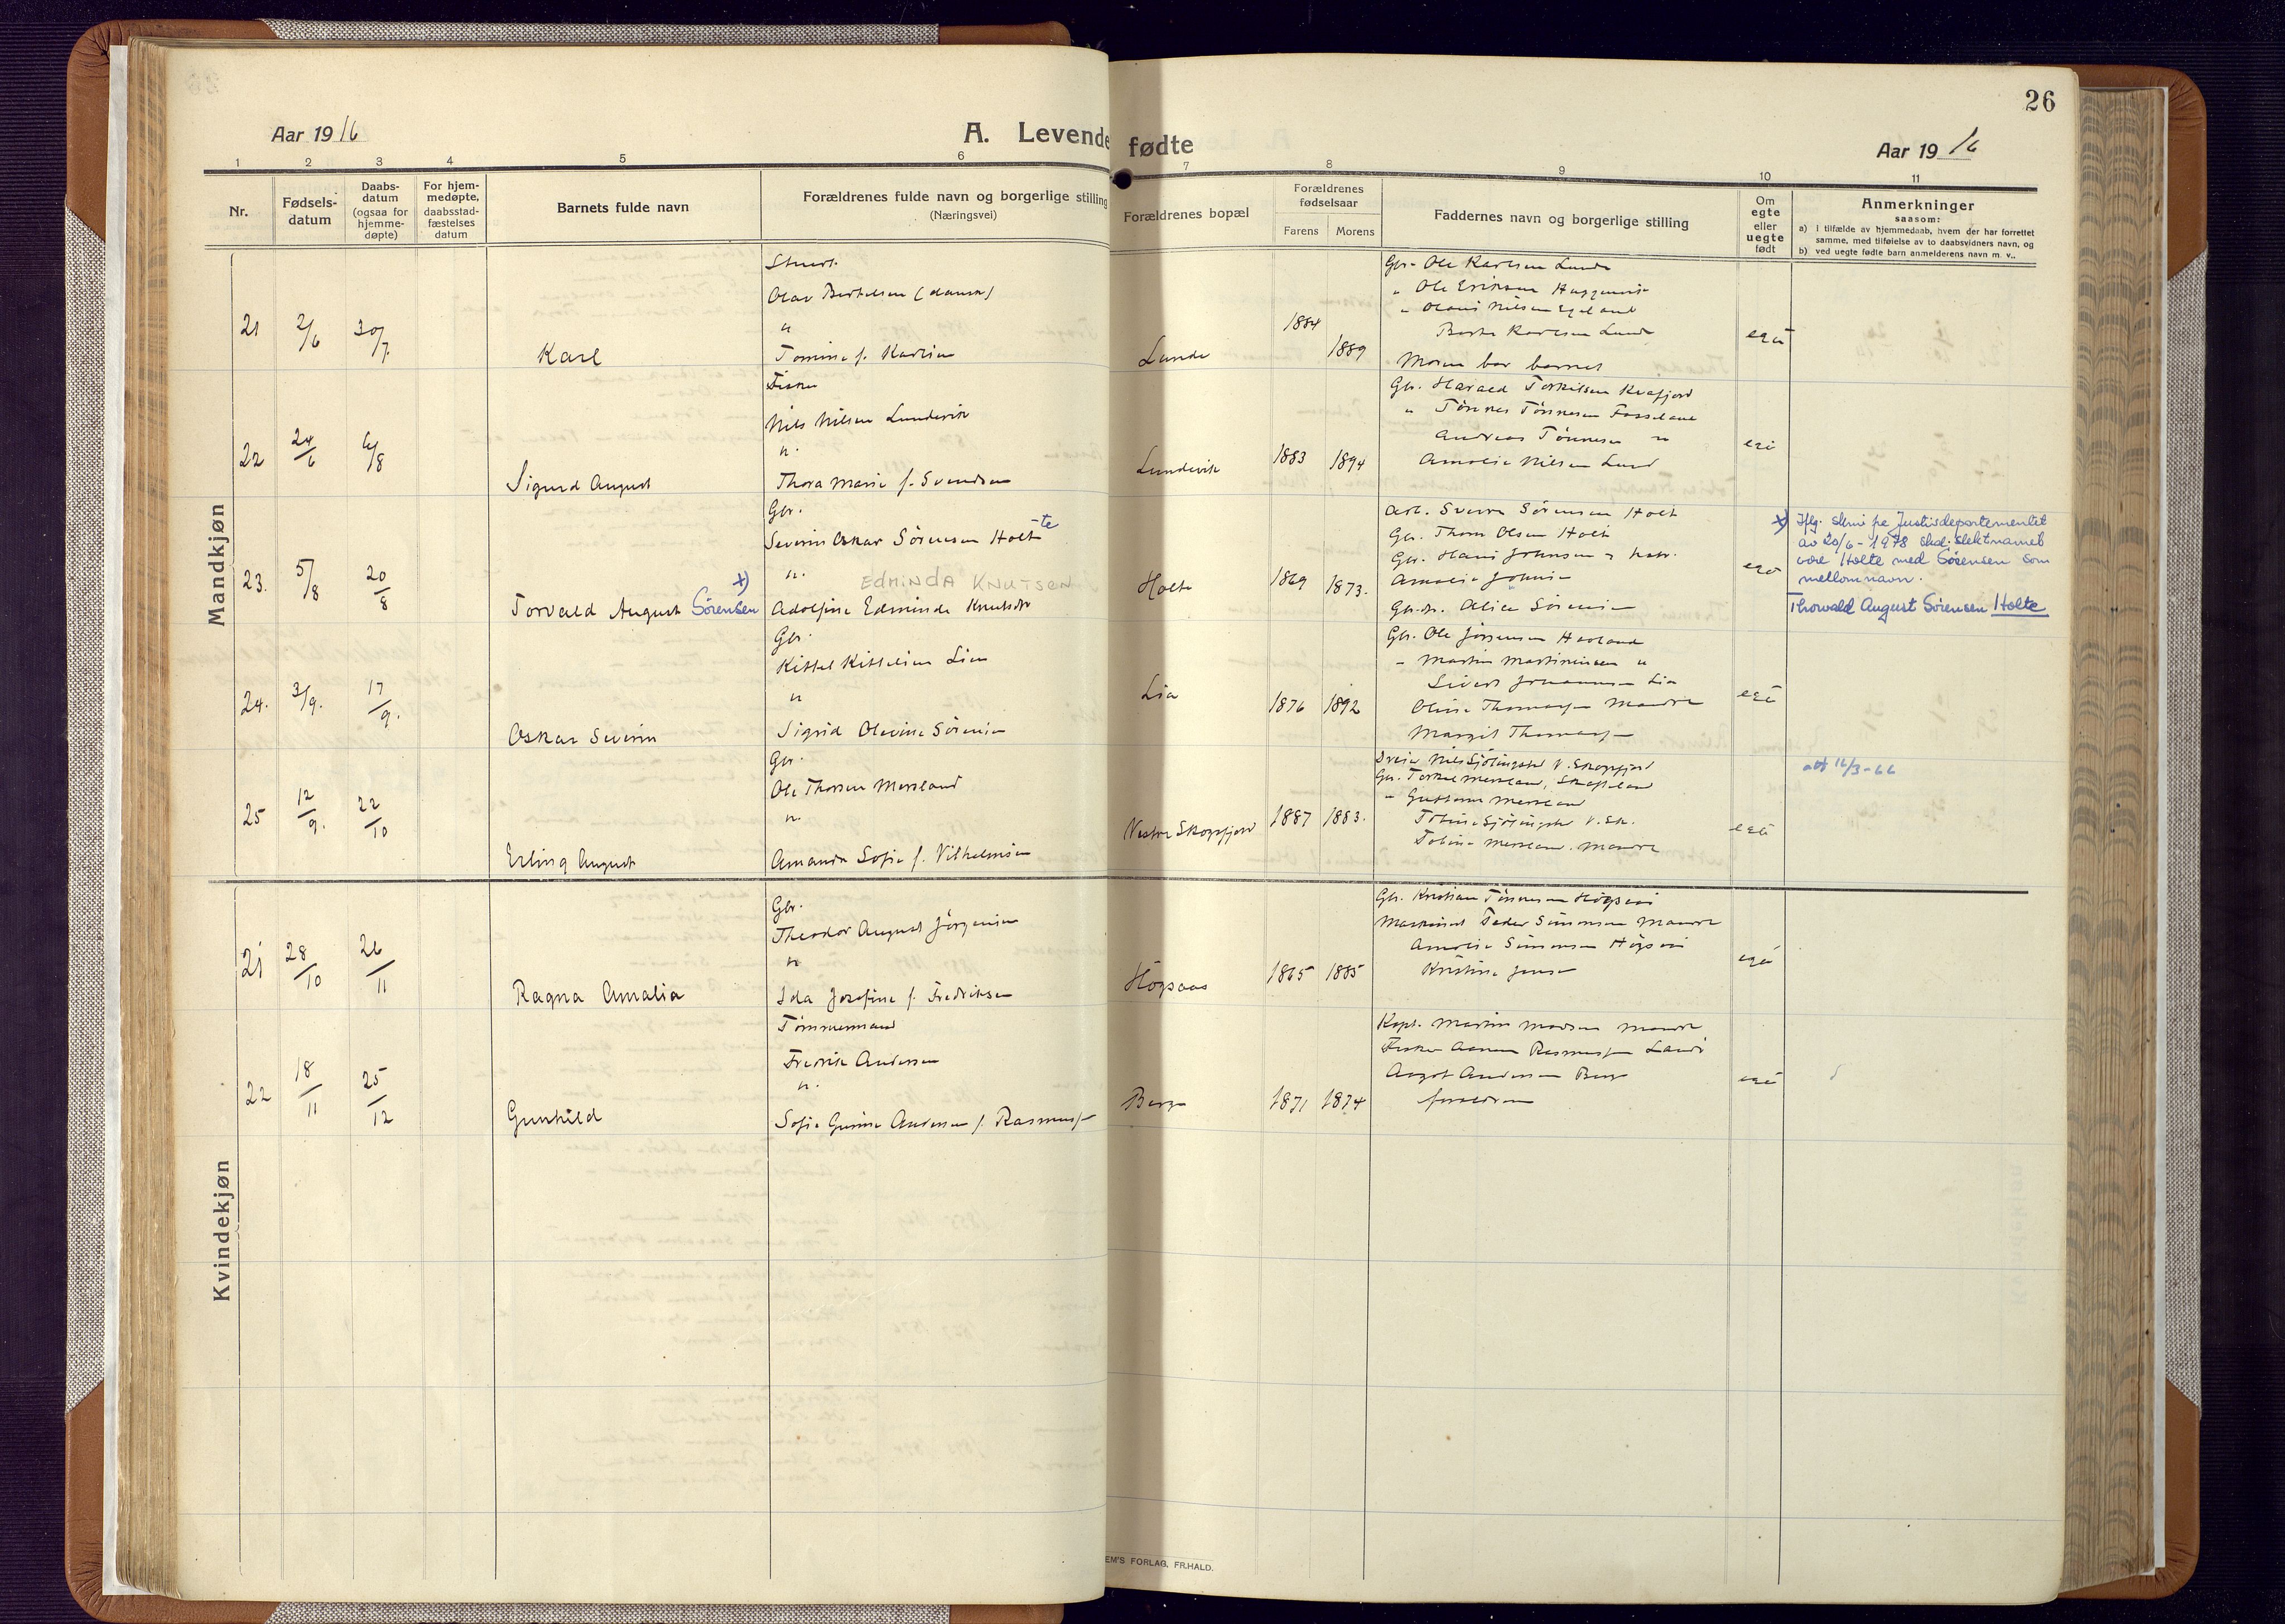 26
Aar 1916
A. Levende fødte
Aar 1916
1 2 3 4 5 6 7 8 9 10 11
Nr.
Fødsels-
datum
Daabs-
datum
(ogsaa for
hjemme-
døpte)
For hjem-
medøpte,
daabsstad-
fæstelses
datum
Barnets fulde navn
Forældrenes fulde navn og borgerlige stilling
(Næringsvei)
Forældrenes bopæl
Forældrenes
fødselsaar
Farens Morens
Faddernes navn og borgerlige stilling
Om
egte
eller
uegte
født
Anmerkninger
saasom:
a) I tilfælde av hjemmedaab, hvem der har forrettet
samme, med tilføielse av to daabsvidners navn, og
b) ved uegte fødte barn anmelderens navn m. v..
Mandkjøn
21 2/6 30/7. Karl
Olav Bertelsen (dansk)
"
Tomine f. Karlsen
Lunde 1884 1889
Gbr. Ole Karlsen Lunde
" Ole Eriksen
" Olaus Nilsen Egeland
Berte Karlsen Lunde
Moren bar barnet
22 24/6 6/8 Sigurd August
Fisker
Nils Nilsen Lundevik
"
Thora Marie f. Svendsen
Lundevik 1883 1894
Gbr. Harald Torkilsen Kvafjord
" Tønnes Tønnesen Fosseland
Andreas Tønnesen "
Amalie Nilsen Lund
23. 5/8 20/8 Torvald August Sørensen x)
Gbr.
Severin Oskar Sørensen Holt te
" EDMINDA KNUTSEN
Adolfine Edminda Knutsdtr
Holte 1869 1873.
Arb. Sverre Sørensen Holt
Gbr. Thom Olsen Holt
Gbr. Hans Johnsen
Amalie Johnsen
Alice Sørensen
x) Iflg. skriv fra Justisdepartementet
av 20/6-1978 skal slektsnavnet
være Holte med Sørensen som
mellomnavn.
Thorvald August Sørensen Holte
24. 3/9. 17/9. Oskar Severin
Gbr.
Kittel Kittelsen Lien
"
Sigrid Olevine Sørensen
Lia 1876 1892
Gbr. Ole Jørgensen Havland
" Martin Martinusen "
Sivert Johannesen Lia
Oline Thomassen Mandal
Margit Thomassen
25 12/9. 22/10 Erling August
Gbr.
Ole Thorsen Mersland
"
Amanda Sofie f. Vilhelmsen
Vestre Skogsfjord 1887 1883.
Nils Sjölingstad V. Skogsfjord
Gbr. Torkel Mersland,
" Guttorm Mersland
Tobine Sjölingstad V. Sk.
Tobine Mersland. Mandal
att 16/3-66
Kvindekjøn
21 28/10 26/11 Ragna Amalia
Gbr.
Theodor August Jørgensen
"
Ida Josefine f. Fredriksen
Høgsaas 1865 1885
Gbr. Kristian Tønnesen Høgsaas
Maskinist Peder Simonsen Mandal
Amalie Simonsen Høgsaas
Kristine Jensen
22 18/11 25/12 Gunhild
Tømmermand
Fredrik Andersen
"
Sofie Gurine Andersen f. Rasmussen
Berge 1871 1874
Kapt. Martin Madsen Mandal
Fisker Aanen Rasmussen
Aagot Andersen Berge
forældrene
EM'S FORLAG, FR.HALD.